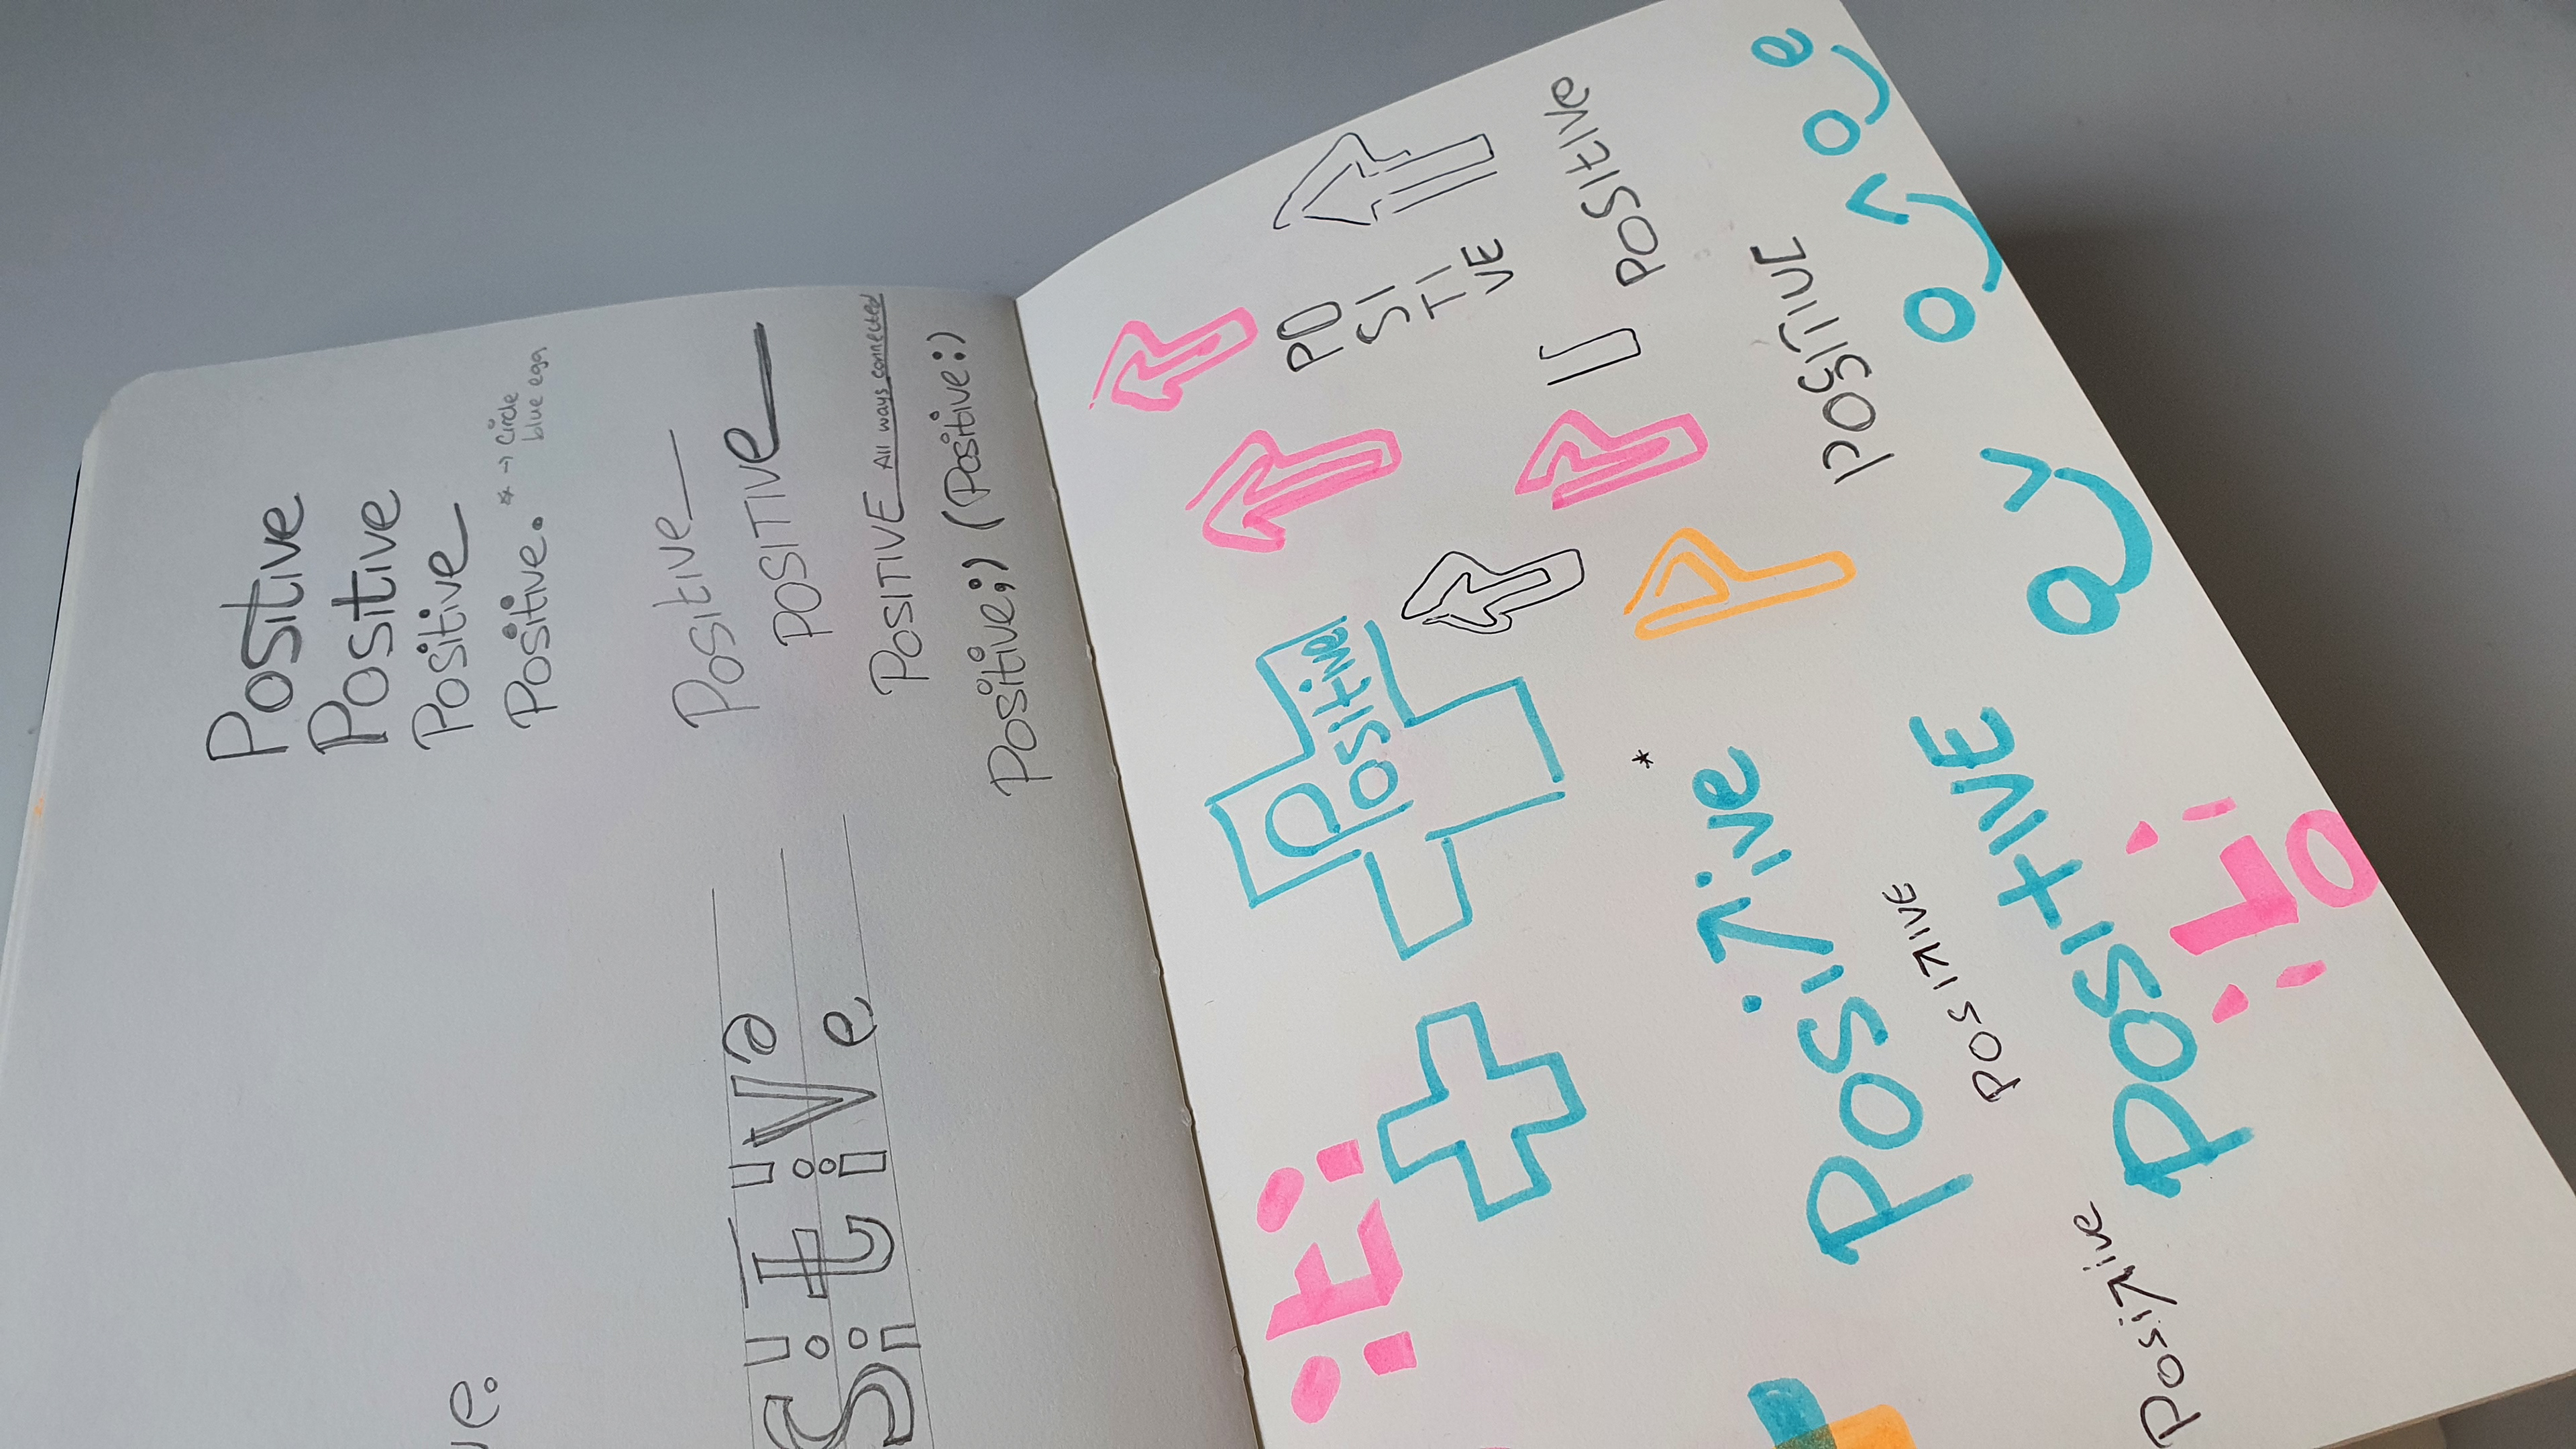 Positive
Positive
Positive
Positive. * → Circle
blue egg
Positive
POSITIVE
POSITIVE All ways connected
Positive;) (Positive:)
ve.
sitive
PO
SI
TI
VE
POSITIVE
POSITIVE
Positive
iti
*
Positive
POSITIVE
POSITIVE
Positive
iti